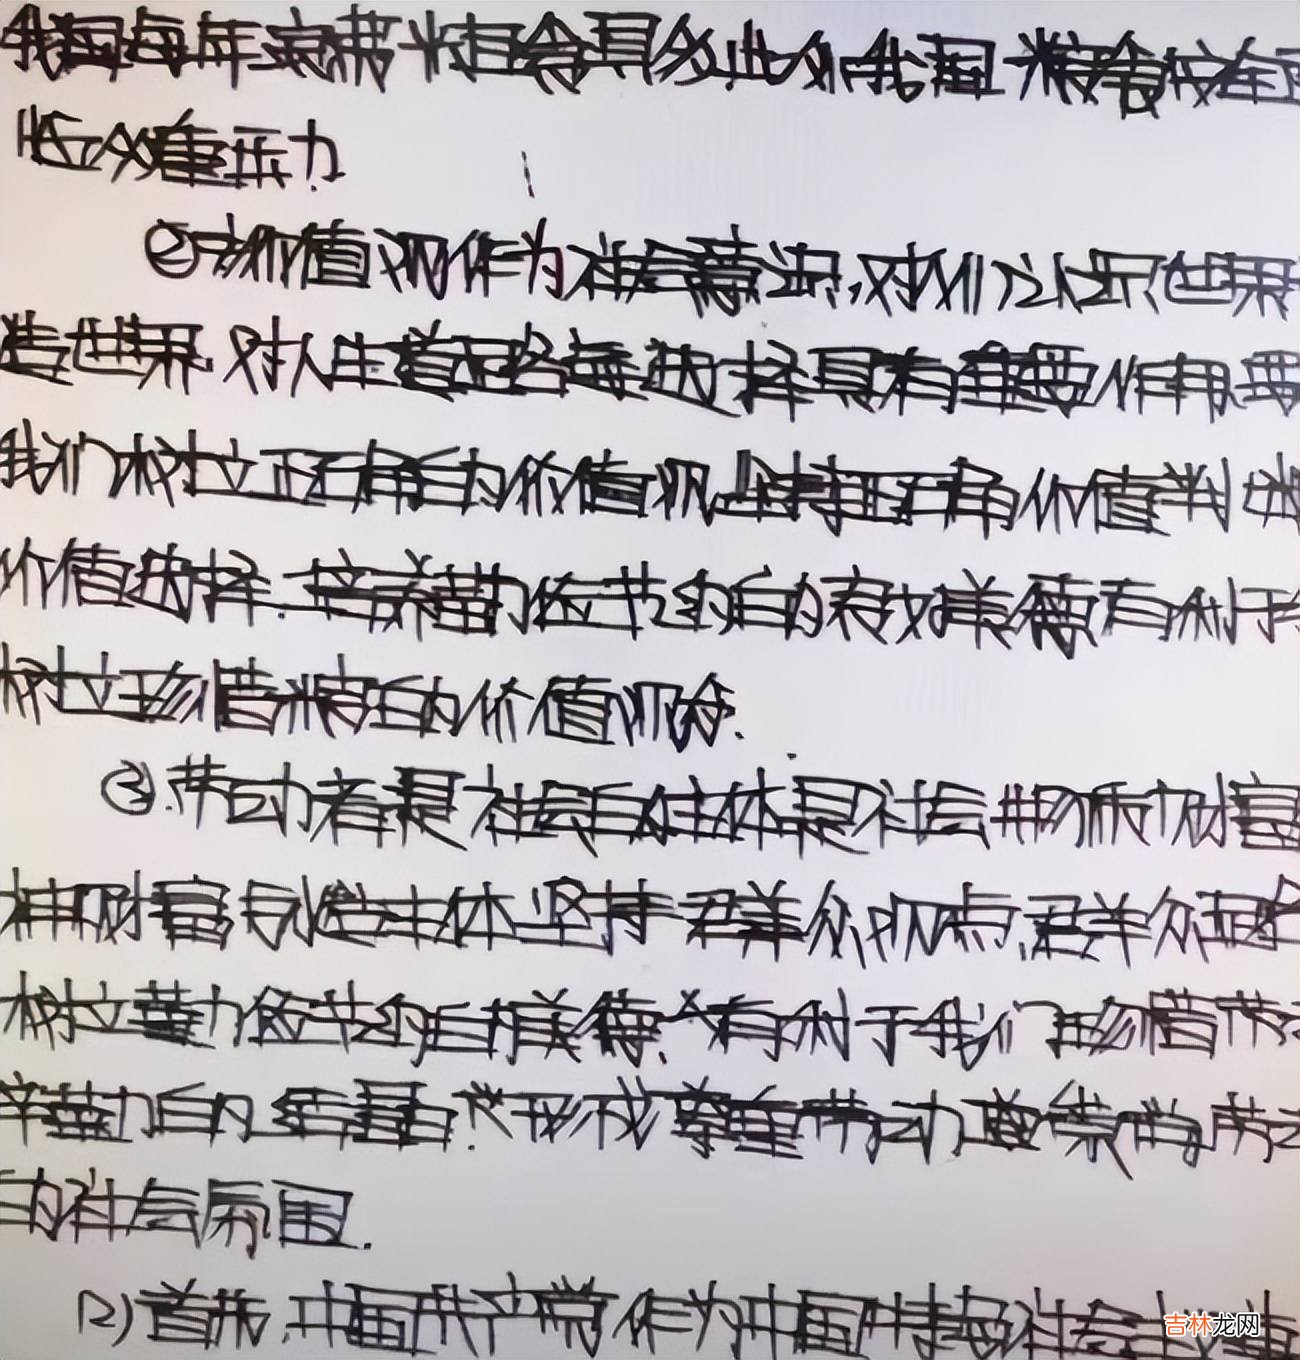 我国每年浪费粮食具多,此外,我国粮食安全面
临众重压力.
②价值观作为社会意识,对人们认识世界
造世界.对人生道路等选择具有重要作用.要
我们树立正确的价值观,坚持正确价值判断
价值选择.培养勤俭节约的良好美德有利于
树立珍惜粮食的价值观念.
③.劳动者是社会的主体是社会物质财富
神财富创造主体.坚持群众观点、群众路
树立勤俭节约的美德.有利于我们珍惜劳
辛勤的结晶.形成尊重劳动崇尚劳动
的社会氛围.
(2)首先,中国共产党作为中国特色社会主义事
吉林龙网